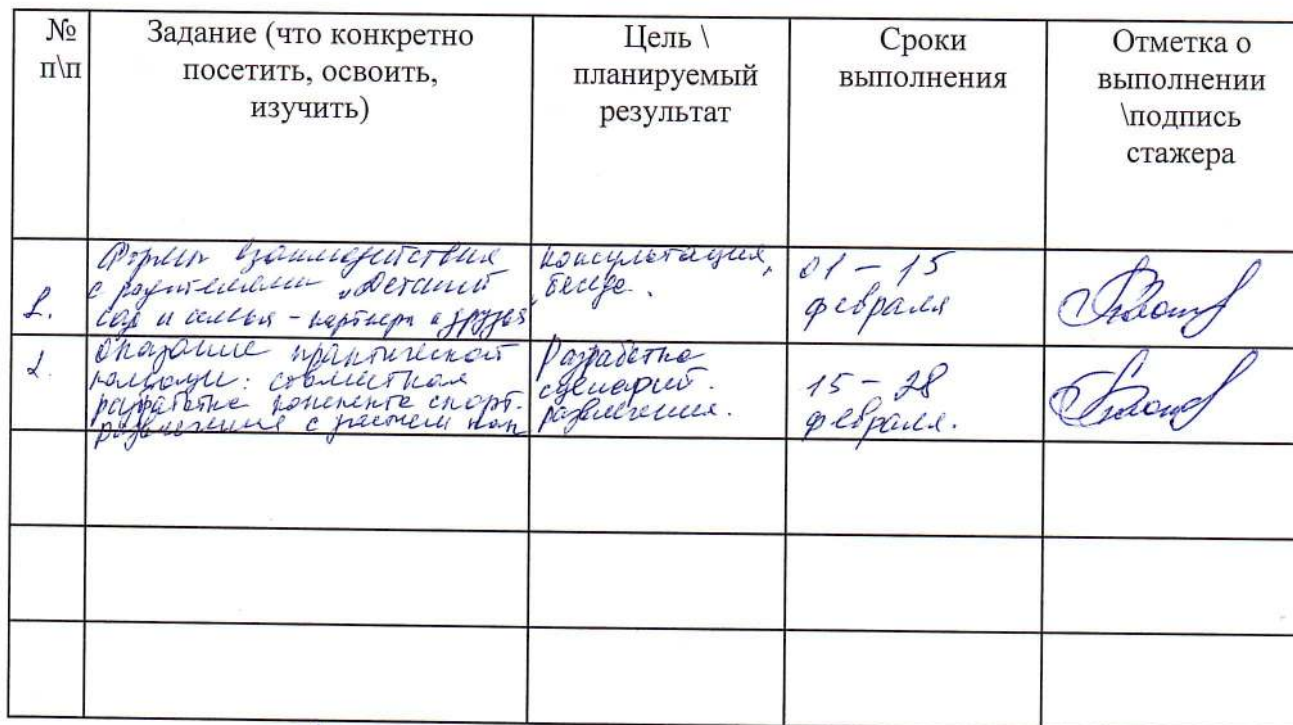 № п\п
Задание (что конкретно
посетить, освоить,
изучить)
Цель \
планируемый
результат
Сроки
выполнения
Отметка о
выполнении
\подпись
стажера
Формы взаимодействия
с родителями „Детский
сад и семья - партнеры и друзья"
консультация,
беседа.
01 - 15
февраля
2.
оказание практической
помощи: совместная
разработка конспекта спорт.
развлечения с участием
Разработка
сценарий
развлечения.
15 - 28
февраля.